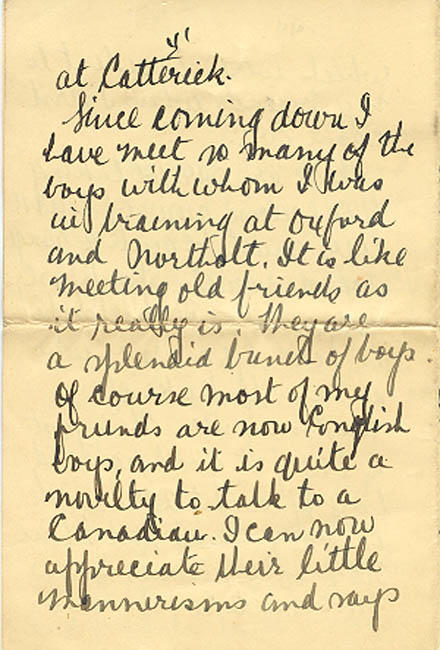 at Catterick.
Since coming down I
have meet so many of the
boys with whom I was
in training at Oxford
and Northolt. It is like
meeting old friends as
it really is. They are
a splendid bunch of boys.
Of course most of my
friends are now English
boys, and it is quite a
novelty to talk to a
Canadian. I can now
appreciate their little
mannerisms and ways